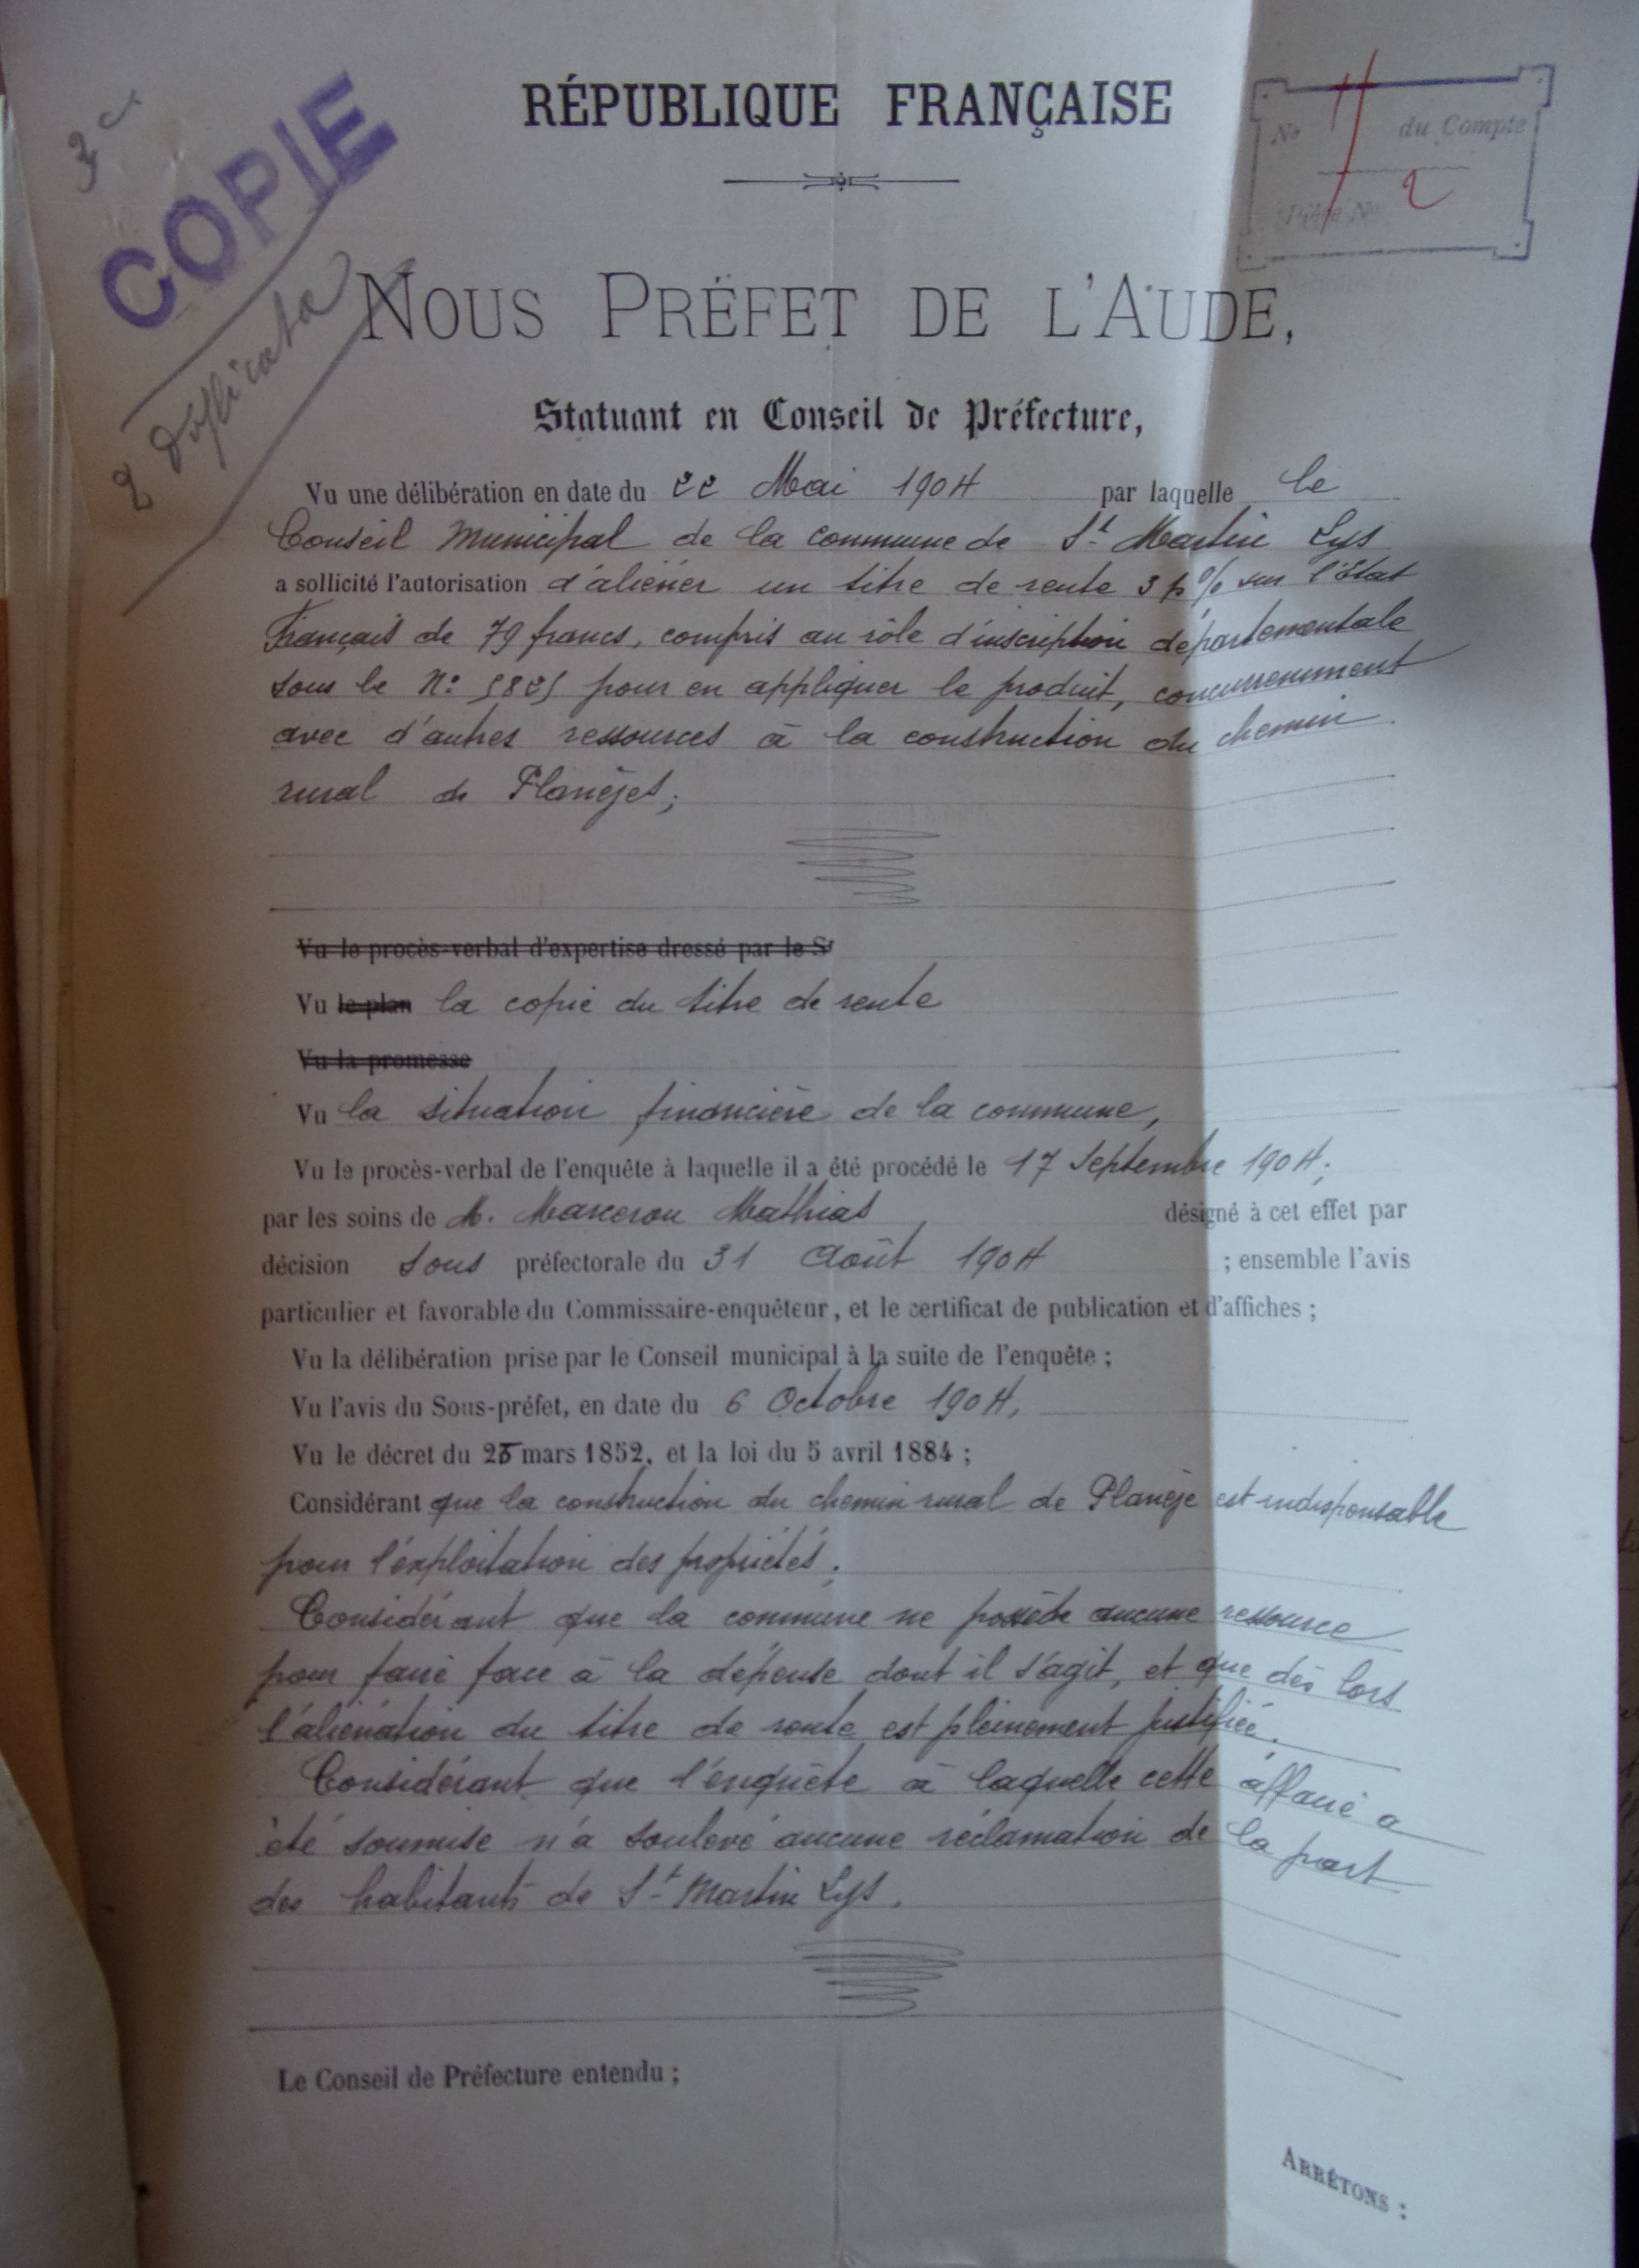 COPIE
2 duplicata
RÉPUBLIQUE FRANÇAISE
No du Compte
2
Pièce No
NOUS PRÉFET DE L'AUDE,
Statuant en Conseil de Préfecture,
Vu une délibération en date du 22 Mai 1904 par laquelle le
Conseil Municipal de la commune de St Martin Lys
a sollicité l'autorisation d'aliéner un titre de rente 3 p % sur l'état
Français de 79 francs, compris au rôle d'inscription départementale
sous le No 5825 pour en appliquer le produit, concurremment
avec d'autres ressources à la construction du chemin
rural de Planèjes;
Vu le procès-verbal d'expertise dressé par le Sr
Vu le plan la copie du titre de rente
Vu la promesse
Vu la situation financière de la commune,
Vu le procès-verbal de l'enquête à laquelle il a été procédé le 17 Septembre 1904;
par les soins de M. Marcerou Mathias désigné à cet effet par
décision sous préfectorale du 31 Août 1904 ; ensemble l'avis
particulier et favorable du Commissaire-enquêteur, et le certificat de publication et d'affiches ;
Vu la délibération prise par le Conseil municipal à la suite de l'enquête ;
Vu l'avis du Sous-préfet, en date du 6 Octobre 1904,
Vu le décret du 25 mars 1852, et la loi du 5 avril 1884 ;
Considérant que la construction du chemin rural de Planèje est indispensable
pour l'exploitation des propriétés;
Considérant que la commune ne possède aucune ressource
pour faire face à la dépense dont il s'agit, et que dès lors
l'aliénation du titre de rente est pleinement justifiée.
Considérant que l'enquête à laquelle cette affaire a
été soumise n'a soulevé aucune réclamation de la part
des habitants de St Martin Lys.
Le Conseil de Préfecture entendu ;
ARRÊTONS :